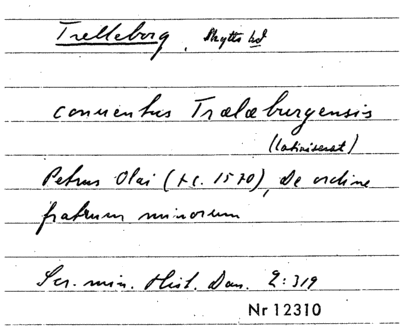 Trelleborg, Skytts hd
conventus Trælæburgensis
(latiniserat)
Petrus Olai (t c. 1570), De ordine
fratrum minorum
Scr. min. Hist. Dan. 2:319
Nr 12310